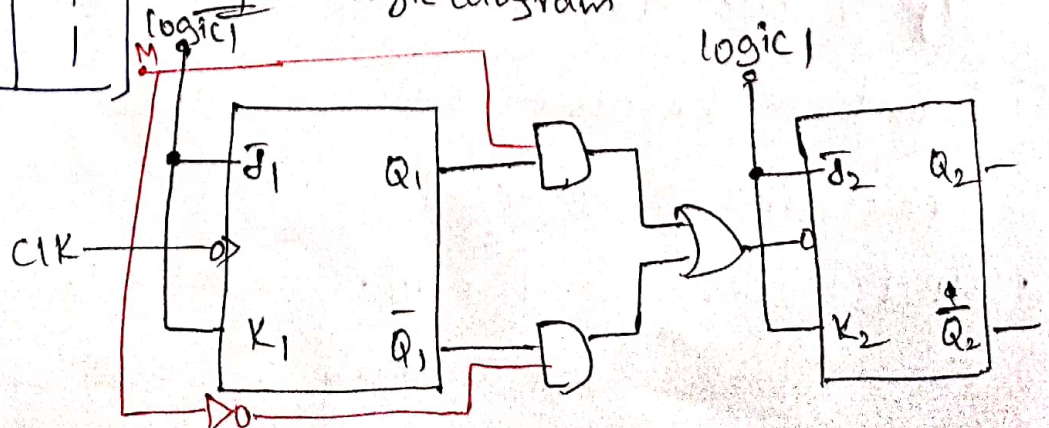 1
logic diagram
logic 1
M
logic 1
J1
Q1
J2
Q2
CLK
K1
Q̅1
K2
Q̅2